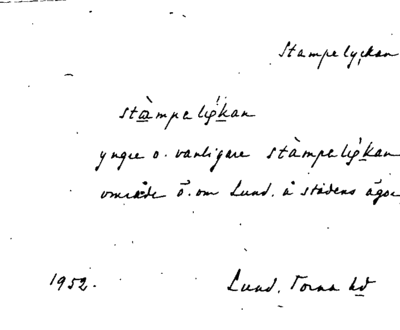 Stampelyckan
stàmpelýkan
yngre o. vanligare stàmpelýkan
område ö. om Lund, å stadens ägor
1952.
Lund. Torna hd